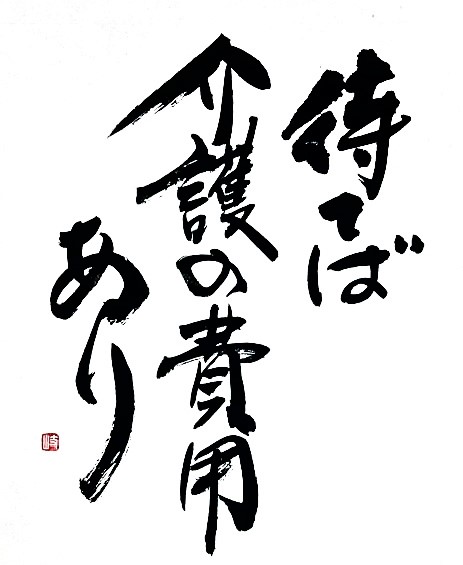 待てば
介護の費用
あり